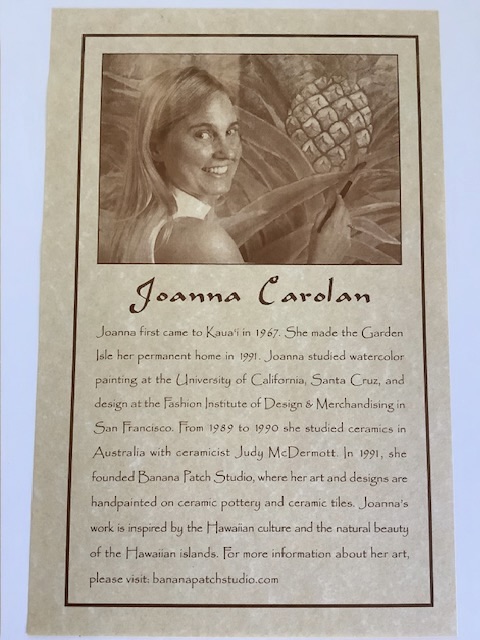 Joanna Carolan
Joanna first came to Kaua'i in 1967. She made the Garden
Isle her permanent home in 1991. Joanna studied watercolor
painting at the University of California, Santa Cruz, and
design at the Fashion Institute of Design & Merchandising in
San Francisco. From 1989 to 1990 she studied ceramics in
Australia with ceramicist Judy McDermott. In 1991, she
founded Banana Patch Studio, where her art and designs are
handpainted on ceramic pottery and ceramic tiles. Joanna's
work is inspired by the Hawaiian culture and the natural beauty
of the Hawaiian islands. For more information about her art,
please visit: bananapatchstudio.com